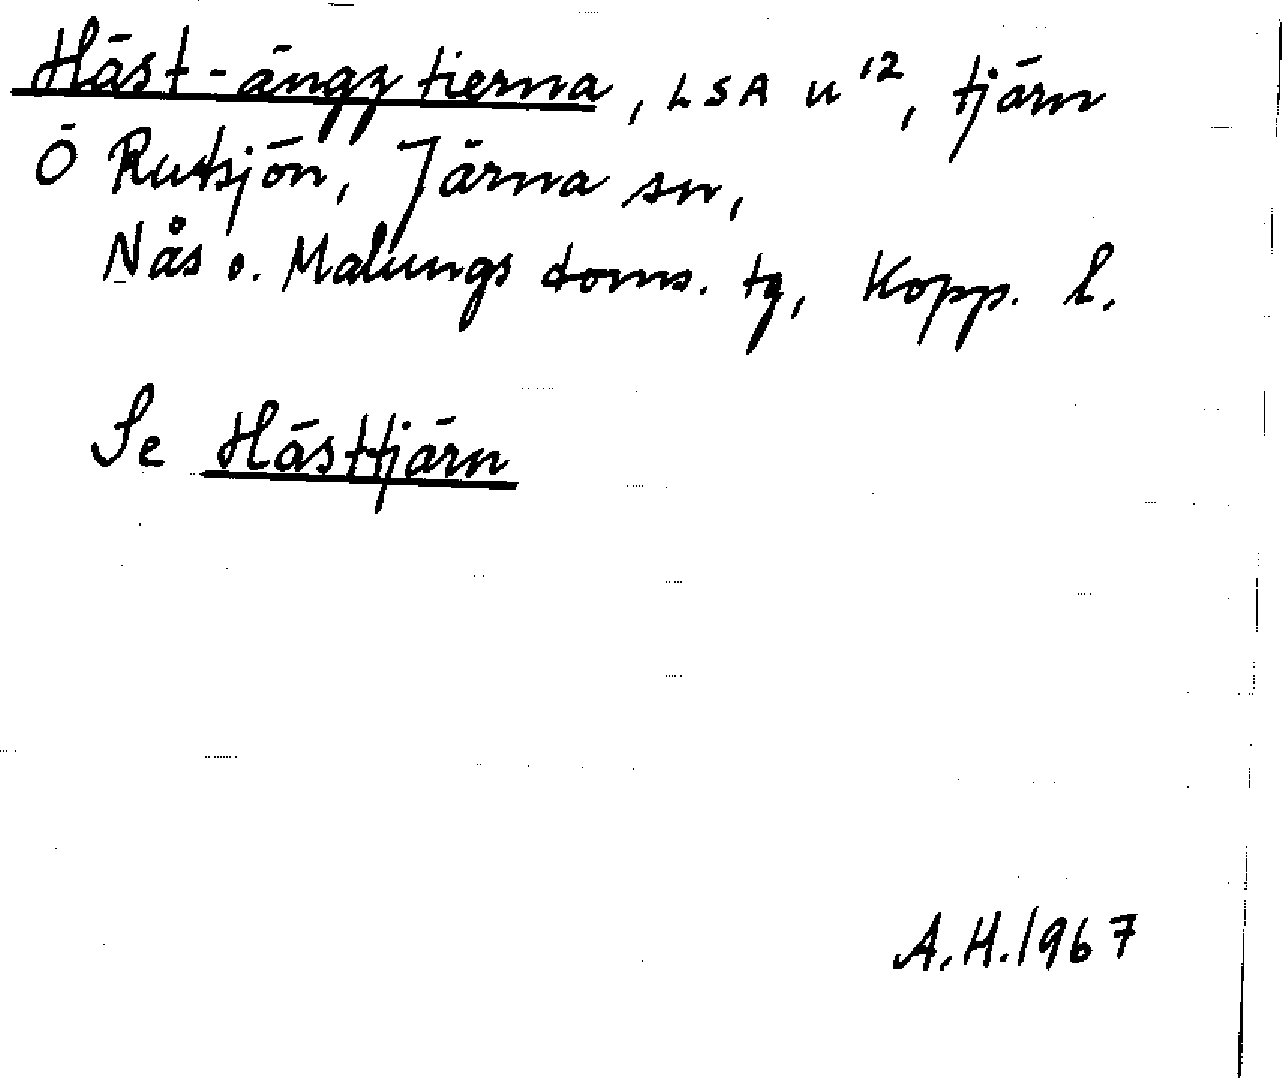 Häst-ängz tierna, LSA u 12, tjärn
Ö Rutsjön, Järna sn,
Nås o. Malungs doms. tg, Kopp. l.
Se Hästtjärn
A.H. 1967